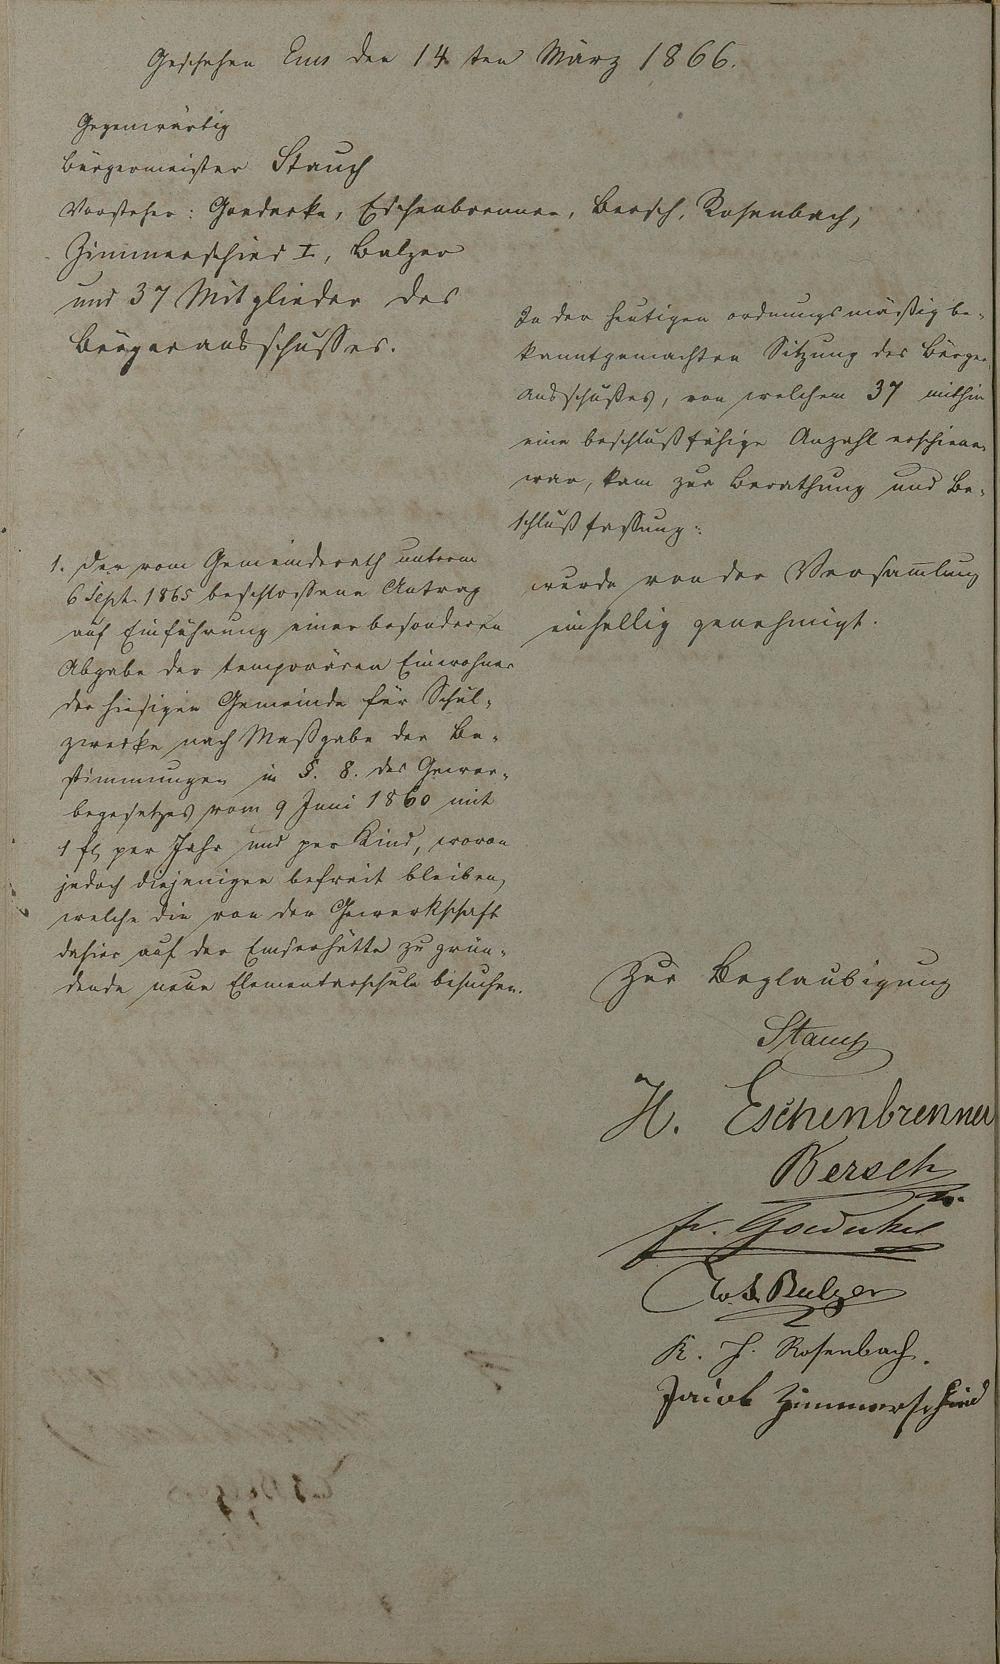 Geschehen Ems den 14ten März 1866.
Gegenwärtig
Bürgermeister Stauch
Vorsteher: Goedecke, Eschenbrenner, Bersch, Rosenbach,
Zimmerschied I, Balzer
und 37 Mitglieder des
Bürgerausschusses.
In der heutigen ordnungsmäßig be-
kanntgemachten Sitzung des Bürger
ausschußes, von welchem 37 mithin
eine beschlußfähige Anzahl erschienen
war, kam zur Berathung und Be-
schlußfassung:
1. Der vom Gemeinderath unterm
6 Sept. 1865 beschlossene Antrag
auf Einführung einer besonderen
Abgabe der temporären Einwohner
der hiesigen Gemeinde für Schul-
zwecke nach Maßgabe der Be-
stimmungen in §. 8. des Gewer-
begesetzes vom 9 Juni 1860 mit
1 fl per Jahr und per Kind, wovon
jedoch diejenigen befreit bleiben,
welche die von der Gewerkschaft
dahier auf der Emserhütte zu grün-
dende neue Elementarschule besuchen.
wurde von der Versam̅lung
einhellig genehmigt.
Zur Beglaubigung
Stauch
H. Eschenbrenner
Bersch
Fr. Goedecke
W. Balzer
K. H. Rosenbach.
Jacob Zimmerschied